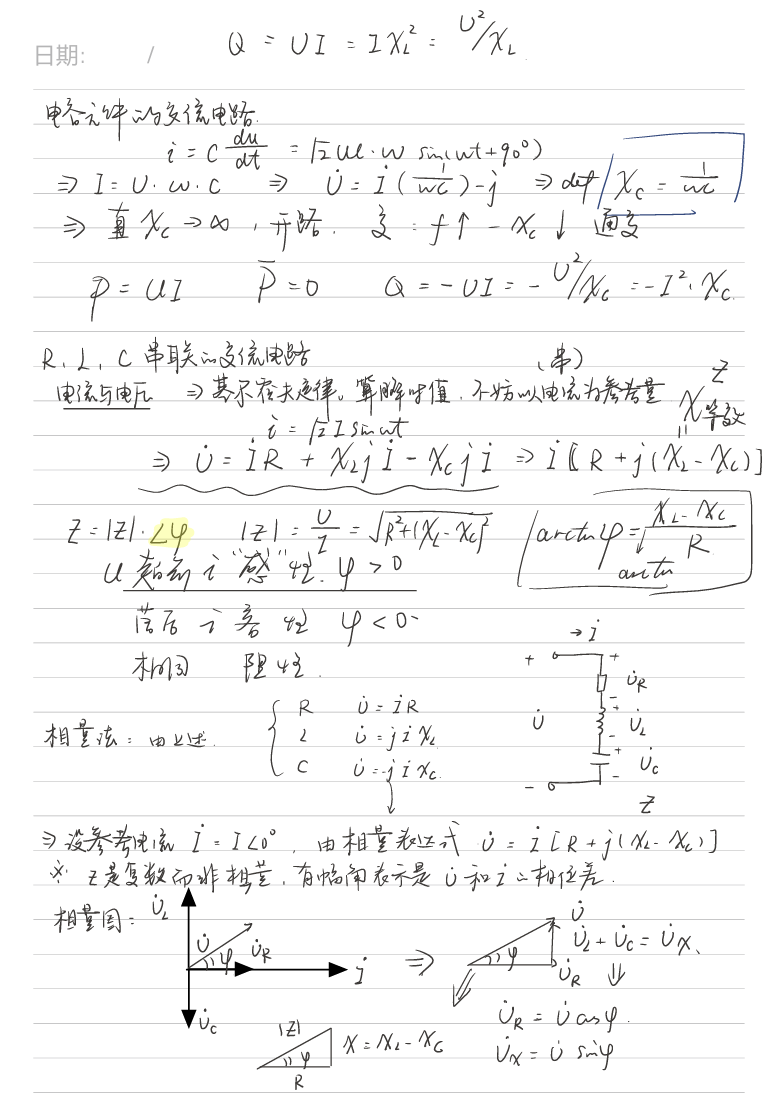 日期: /
Q = UI = I X_L² = U²/X_L
电容元件的交流电路.
i = C du/dt = √2 UC·w sin(wt+90°)
⇒ I = U·w·C ⇒ U̇ = İ(1/wC)-j ⇒ def X_C = 1/wC
⇒ 直 X_C → ∞, 开路. 交: f↑ - X_C ↓ 通交
p = UI P̄ = 0 Q = -UI = -U²/X_C = -I²·X_C.
R, L, C 串联的交流电路 (串)
电流与电压 ⇒ 基尔霍夫定律。算瞬时值. 不妨以电流为参考量
Z
X等效
i = √2 I sinwt
⇒ U̇ = İR + X_L j İ - X_C j İ ⇒ İ[R + j(X_L - X_C)]
Z = |Z|·∠φ |Z| = U/I = √R²+(X_L-X_C)² arctan φ = X_L-X_C / R
arctan
U 超前 i "感"性. φ > 0
落后 i 容性 φ < 0
相同 阻性.
→ İ
+ + U̇_R -
U̇ + U̇_L -
+ U̇_C -
- Z
相量法: 由上述. R U̇ = İR
L U̇ = j İ X_L
C U̇ = -j İ X_C
⇒ 设参考电流 İ = I∠0°, 由相量表达式 U̇ = İ[R + j(X_L - X_C)]
※ Z是复数而非相量, 有幅角表示是 U̇ 和 İ 之相位差.
相量图:
U̇_L
U̇ φ U̇_R İ
U̇_C
⇒ U̇ φ U̇_R
U̇_L + U̇_C = U̇_X、
⇓
U̇_R = U̇ cosφ.
U̇_X = U̇ sinφ
|Z| φ R X = X_L - X_C